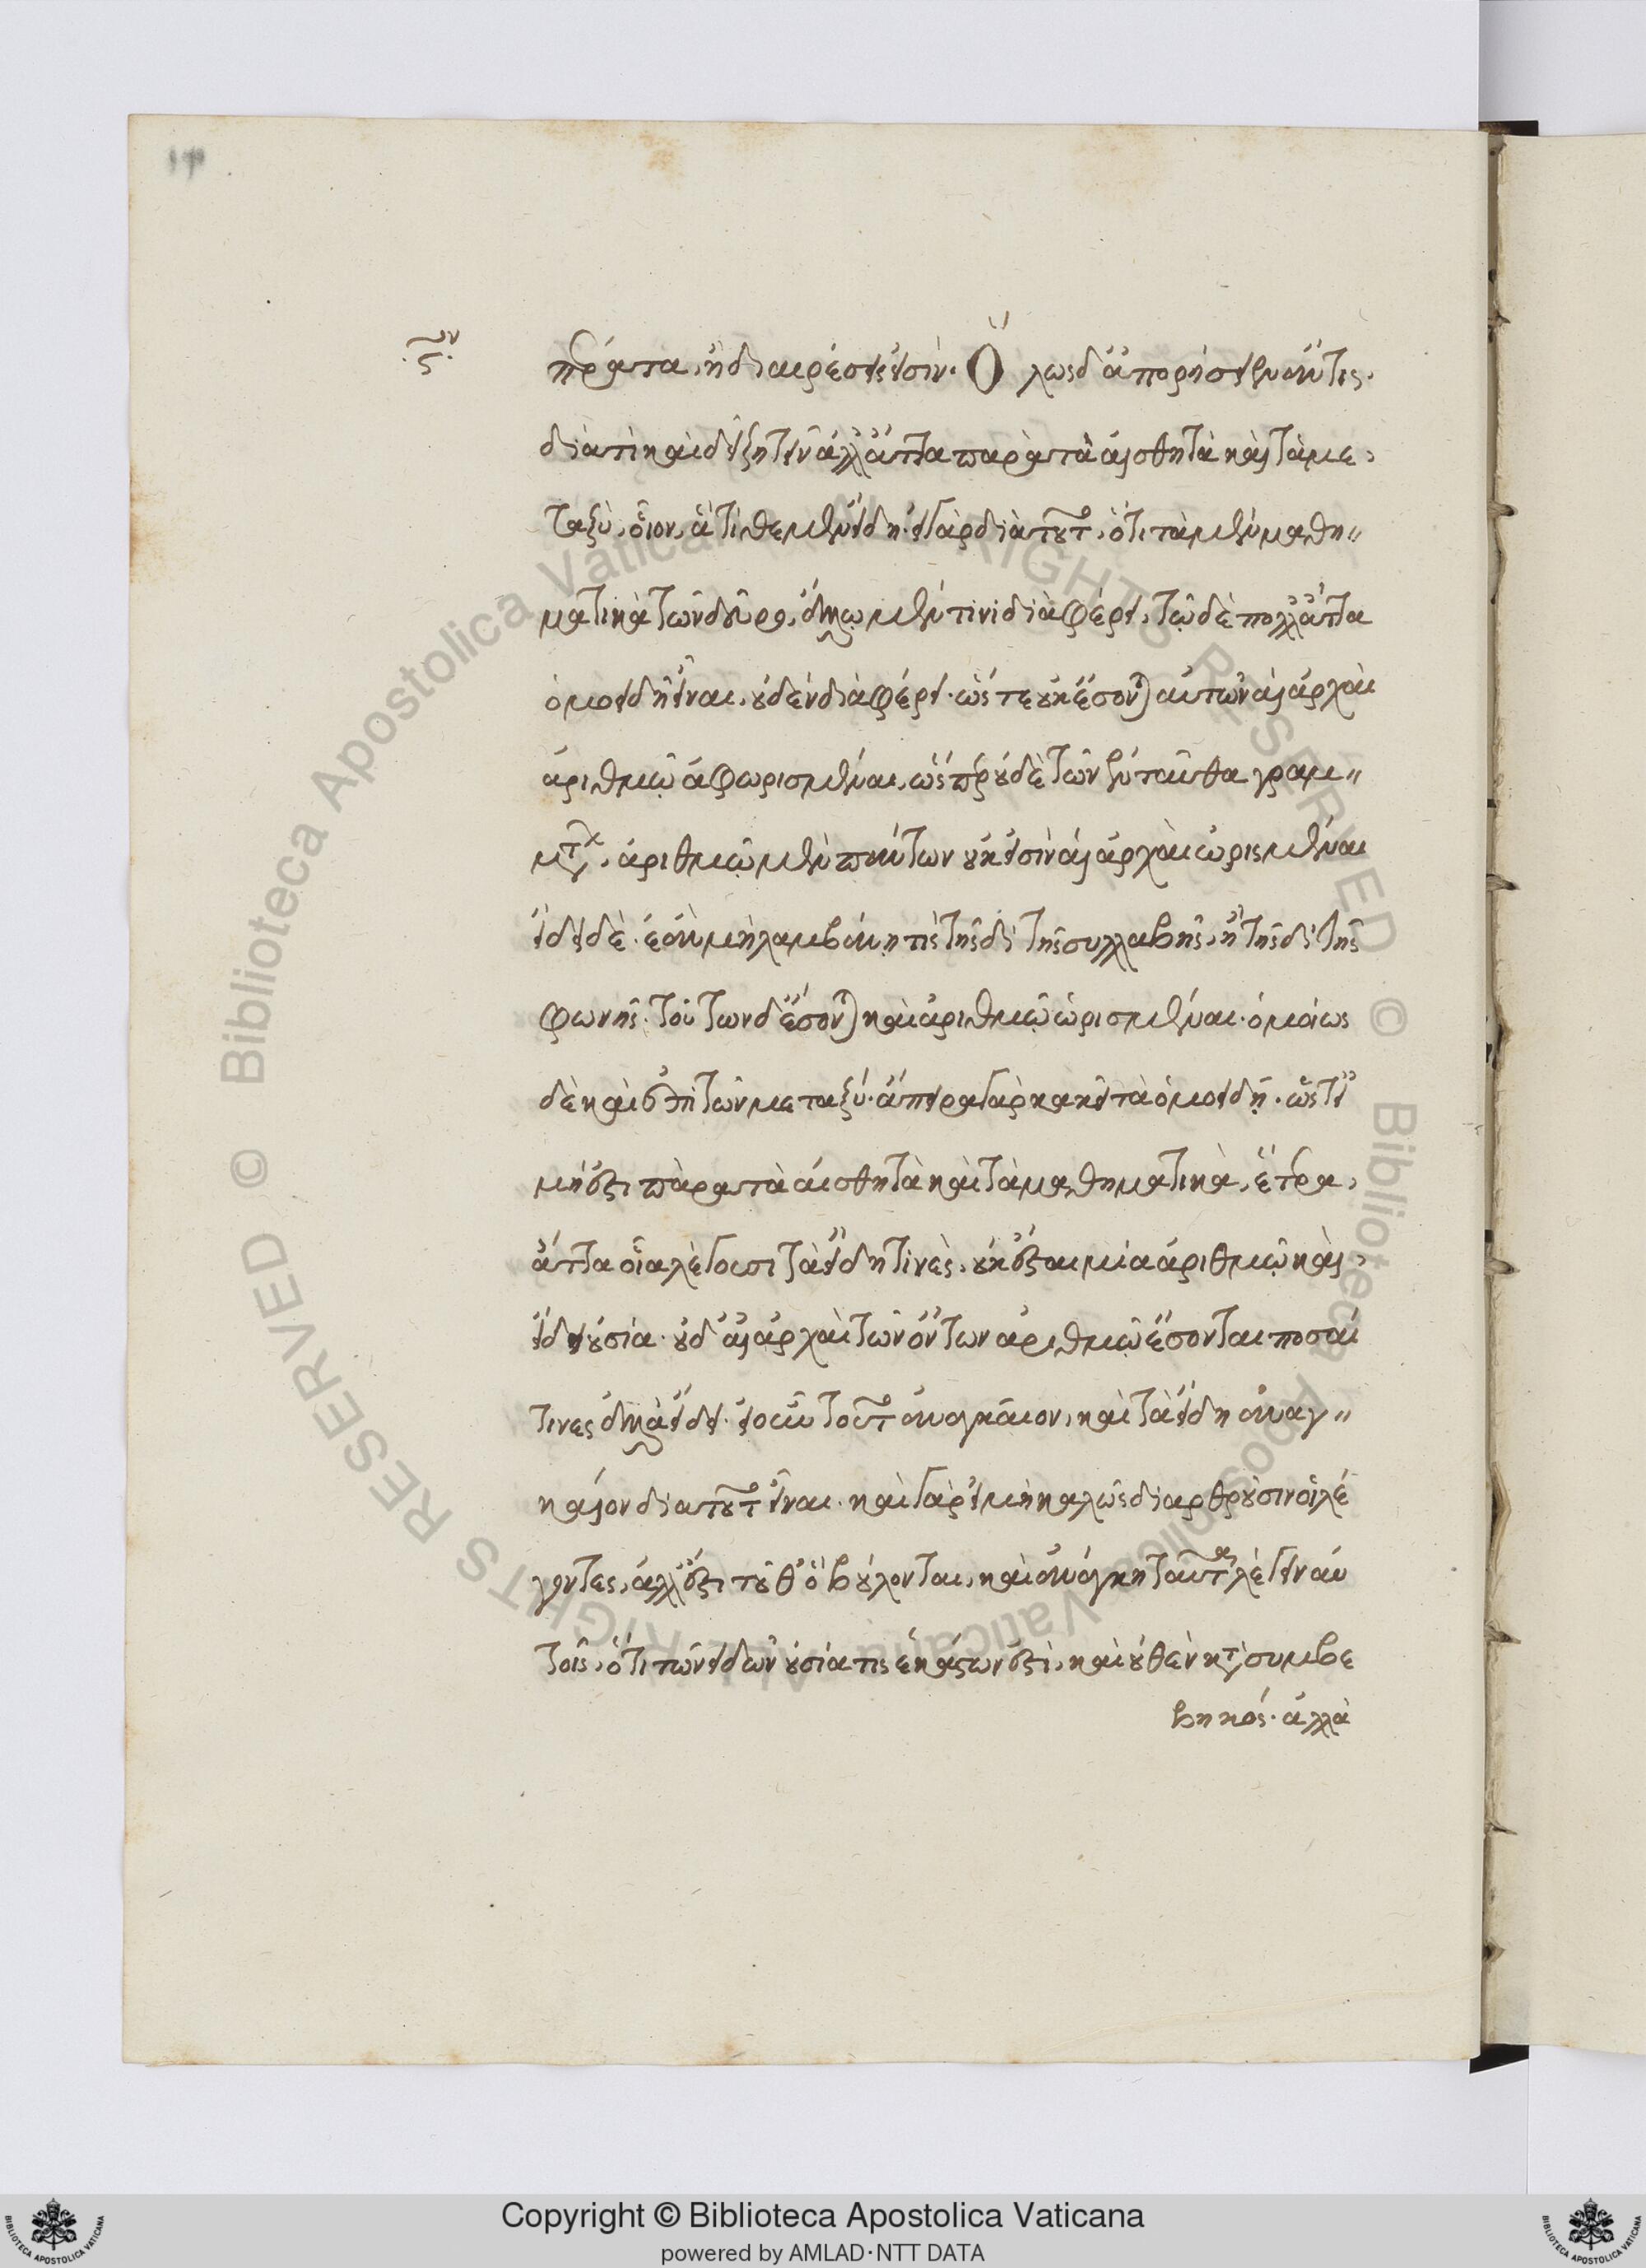 πέρατα, ἢ διαιρέσεις εἰσίν. Ὅλως δ' ἀπορήσειεν ἄν τις.
διὰ τί καὶ δεῖ ζητεῖν ἄλλ' ἄττα παρὰ τὰ αἰσθητὰ καὶ τὰ με
ταξύ, οἷον, ἃ τίθεμεν εἴδη. εἰ γὰρ διὰ τοῦτο, ὅτι τὰ μὲν μαθη
ματικὰ τῶν δεῦρο, ἄλλῳ μέν τινι διαφέρει, τῷ δὲ πολλ' ἄττα
ὁμοειδῆ εἶναι, οὐδὲν διαφέρει. ὥστε οὐκ ἔσονται αὐτῶν αἱ ἀρχαὶ
ἀριθμῷ ἀφωρισμέναι, ὥσπερ οὐδὲ τῶν ἐνταῦθα γραμ
μάτων, ἀριθμῷ μὲν πάντων οὐκ εἰσὶν αἱ ἀρχαὶ ὡρισμέναι
εἴδει δέ. ἐὰν μὴ λαμβάνῃ τις τησδὶ τῆς συλλαβῆς, ἢ τησδὶ τῆς
φωνῆς. τούτων δ' ἔσονται καὶ ἀριθμῷ ὡρισμέναι. ὁμοίως
δὲ καὶ ἐπὶ τῶν μεταξύ. ἄπειρα γὰρ κἀκεῖ τὰ ὁμοειδῆ. ὥστ' εἰ
μή ἐστι παρὰ τὰ αἰσθητὰ καὶ τὰ μαθηματικὰ, ἕτερα
ἄττα οἷα λέγουσι τὰ εἴδη τινές, οὐκ ἔσται μία ἀριθμῷ καὶ
εἴδει οὐσία. οὐδ' αἱ ἀρχαὶ τῶν ὄντων ἀριθμῷ ἔσονται ποσαί
τινες ἀλλὰ εἴδει. εἰ οὖν τοῦτο ἀναγκαῖον, καὶ τὰ εἴδη ἀναγ
καῖον διὰ τοῦτο εἶναι. καὶ γὰρ εἰ μὴ καλῶς διαρθροῦσιν οἱ λέ
γοντες, ἀλλ' ἔστι τοῦθ' ὃ βούλονται, καὶ ἀνάγκη ταῦτα λέγειν αὐ
τοῖς, ὅτι τῶν εἰδῶν οὐσία τις ἕκαστων ἐστὶ, καὶ οὐθὲν κατὰ συμβε
βηκός. ἀλλὰ
© Biblioteca Apostolica Vaticana ALL RIGHTS RESERVED © Biblioteca Apostolica Vaticana ALL RIGHTS RESERVED
Copyright © Biblioteca Apostolica Vaticana
powered by AMLAD·NTT DATA